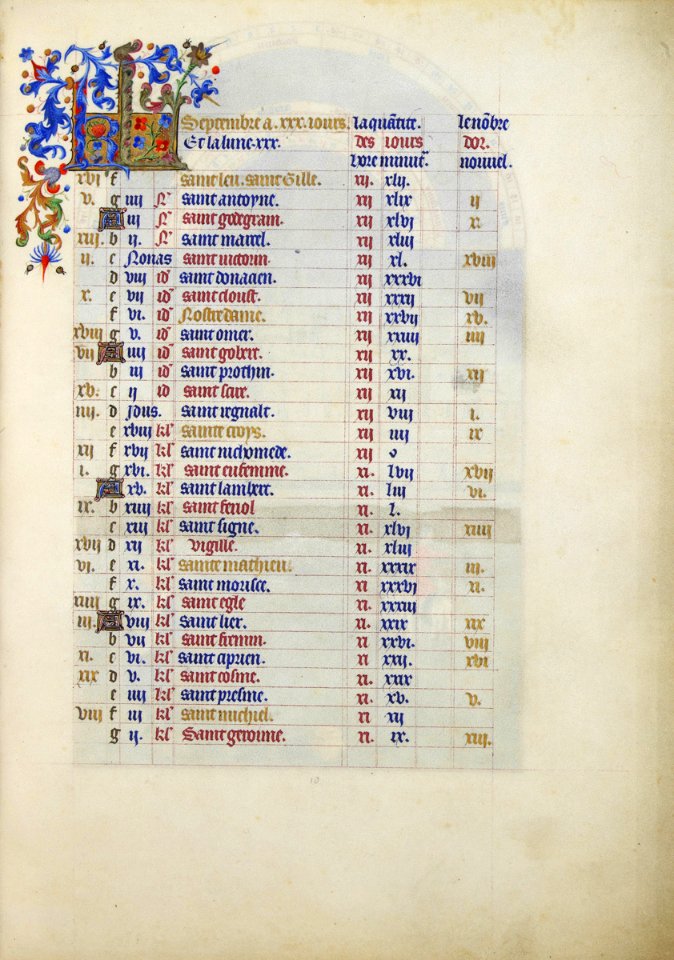 KL Septembre a .xxx. iours. la quãtite. le nõbre
Et la lune .xxx. des iours dor.
hore minut̃. nouuel.
xvi f saint leu. saint Gille. xij. xlij.
v. g iiij N̾ saint antoyne. xij xlix ij
A iij N̾ saint godegran. xij xlvi x.
xiij. b ij. N̾ saint marcel. xij xliij
ij. c Nonas saint victorin xij xl. xviij
d viij id̾ saint donacien. xij xxxvi
x. e vij id̾ saint cloust. xij xxxij vij
f vi. id̾ Nostre dame. xij xxvij xv.
xviij g v. id̾ saint omer. xij xxiiij iiij
vij A iiij id̾ saint gobert. xij xx.
b iij id̾ saint prothin. xij xvi. xij
xv. c ij id saint sire. xij xij
iiij. d jdus. saint regnalt. xij viij i.
e xviij kl̾ sainte crois. xij iiij ix
xij f xvij kl̾ saint nichomede. xij o
i. g xvi. kl̾ saint eufemme. xi. lvij xvij
A xv. kl̾ saint lambert. xi. liij vi.
ix. b xiiij kl̾ saint feriol xi. l.
c xiij kl̾ saint signe. xi. xlvi xiiij
xvij d xij kl̾ vigille. xi. xliij
vi. e xi. kl̾ saint mathieu. xi. xxxix iij.
f x. kl̾ saint morisee. xi. xxxvi xi.
xiiij g ix. kl̾ saint egle xi. xxxiij
iij. A viij kl̾ saint lier. xi. xxix xix
b vij kl̾ saint fremin. xi xxvi. viij
xi. c vi. kl̾ saint ciprien. xi. xxij. xvi
xix d v. kl̾ saint cosme. xi. xix
e iiij kl̾ saint presme. xi. xv. v.
viij f iij kl̾ saint michiel. xi xij
g ij. kl̾ Saint geroime. xi. ix. xiij.